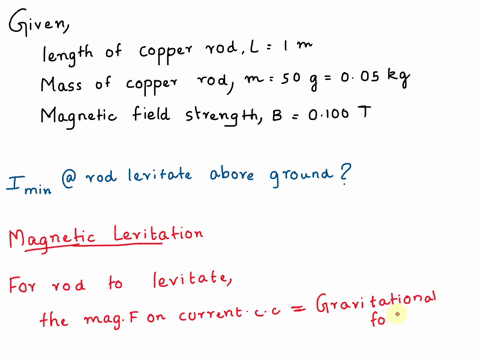 Given,
length of copper rod, L = 1 m
Mass of copper rod, m = 50 g = 0.05 kg
Magnetic field strength, B = 0.100 T
I min @ rod levitate above ground?
Magnetic Levitation
For rod to levitate,
the mag. F on current. c. c = Gravitational
fo